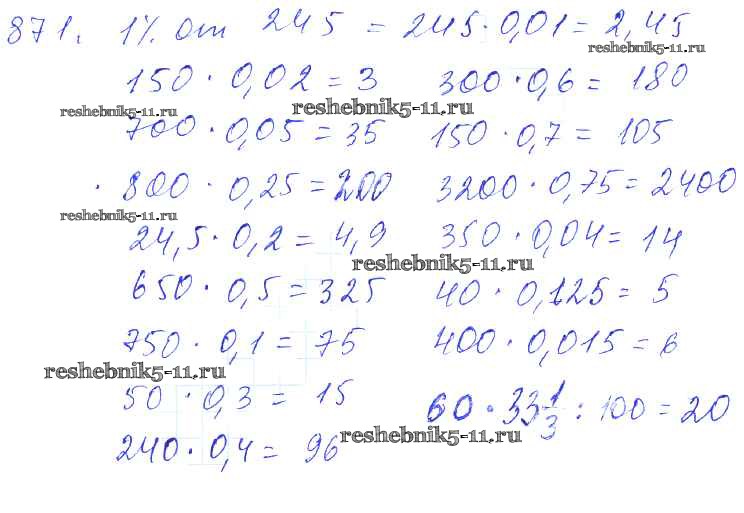 871. 1% от 245 = 245 · 0,01 = 2,45
reshebnik5-11.ru
150 · 0,02 = 3 300 · 0,6 = 180
reshebnik5-11.ru reshebnik5-11.ru
700 · 0,05 = 35 150 · 0,7 = 105
800 · 0,25 = 200 3200 · 0,75 = 2400
reshebnik5-11.ru
24,5 · 0,2 = 4,9 350 · 0,04 = 14
reshebnik5-11.ru
650 · 0,5 = 325 40 · 0,125 = 5
750 · 0,1 = 75 400 · 0,015 = 6
reshebnik5-11.ru
50 · 0,3 = 15 60 · 33 1/3 : 100 = 20
reshebnik5-11.ru
240 · 0,4 = 96